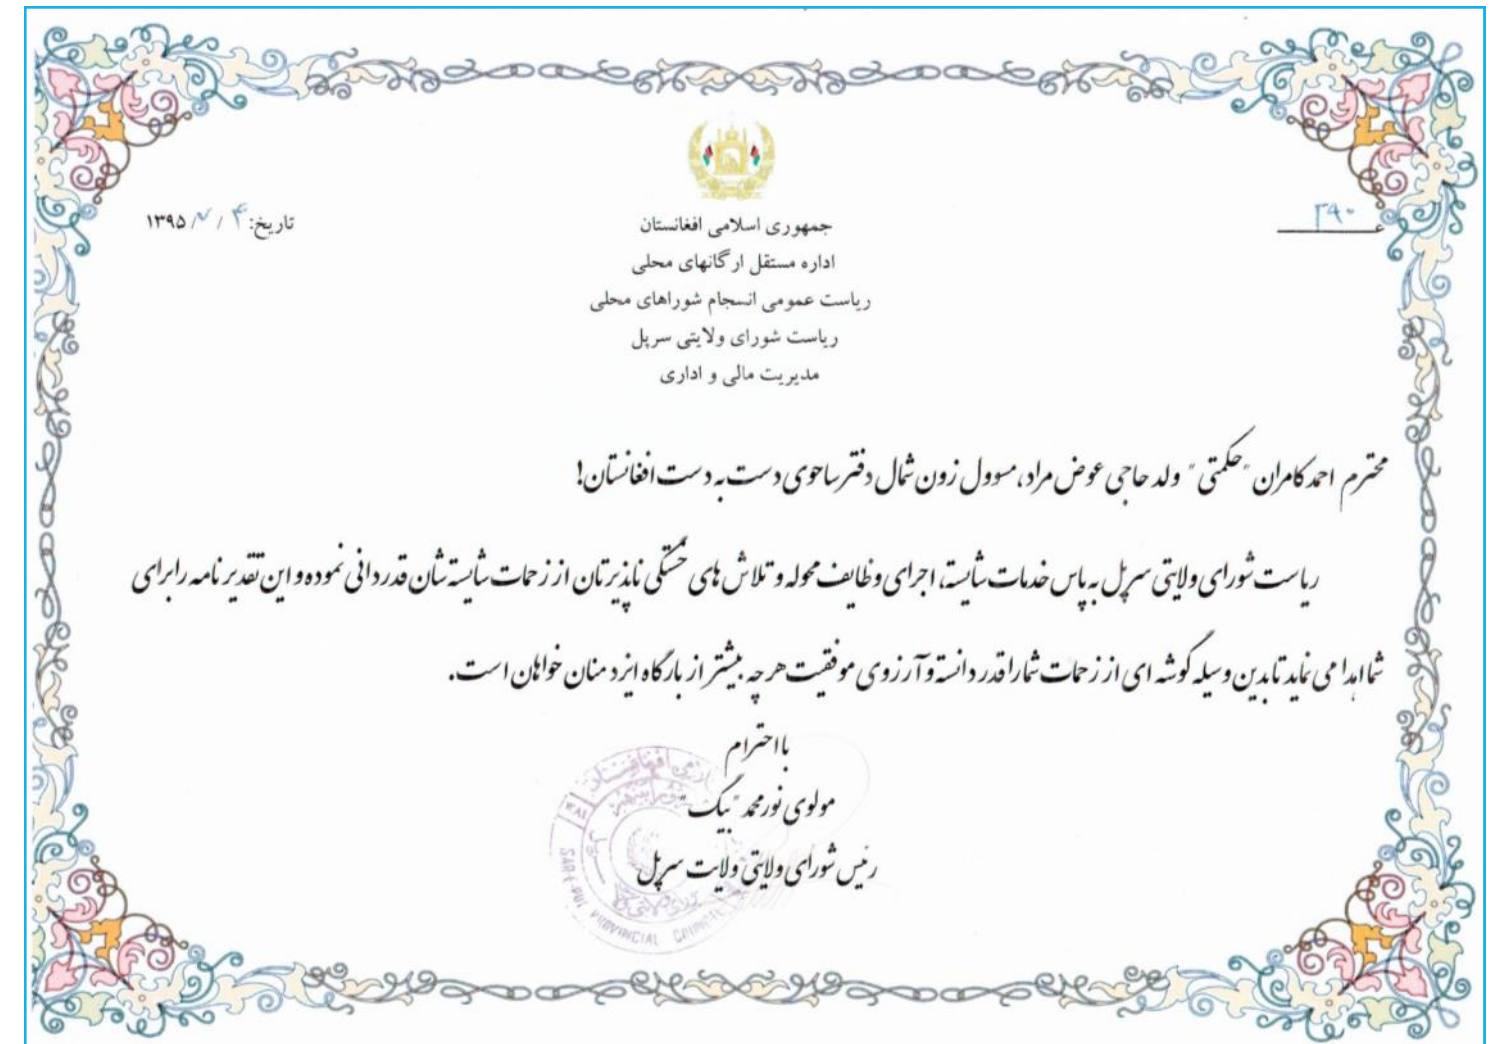 ۳۹۰
تاریخ: ۴ / ۷ / ۱۳۹۵
جمهوری اسلامی افغانستان
اداره مستقل ارگانهای محلی
ریاست عمومی انسجام شوراهای محلی
ریاست شورای ولایتی سرپل
مدیریت مالی و اداری
محترم احمد کامران "حکمتی" ولد حاجی عوض مراد، مسوول زون شمال دفتر ساحوی دست به دست افغانستان!
ریاست شورای ولایتی سرپل به پاس خدمات شایسته، اجرای وظایف محوله و تلاش های خستگی ناپذیر تان از زحمات شایسته شان قدردانی نموده و این تقدیر نامه را برای
شما اهدا می نماید تا بدین وسیله گوشه ای از زحمات شما را قدر دانسته و آرزوی موفقیت هر چه بیشتر از بارگاه ایزد منان خواهان است.
با احترام
مولوی نورمحمد "بیگ"
رئیس شورای ولایتی ولایت سرپل
SAR-E-PUL PROVINCIAL